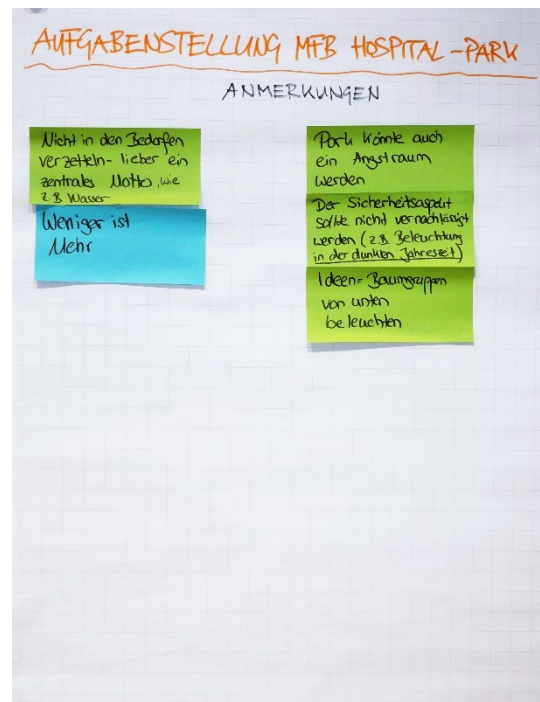 AUFGABENSTELLUNG MFB HOSPITAL-PARK
ANMERKUNGEN
Nicht in den Bedarfen
verzetteln - lieber ein
zentrales Motto, wie
z.B. Wasser
Weniger ist
Mehr
Park könnte auch
ein Angstraum
werden
Der Sicherheitsaspekt
sollte nicht vernachlässigt
werden (z.B. Beleuchtung
in der dunklen Jahreszeit)
Ideen= Baumgruppen
von unten
beleuchten